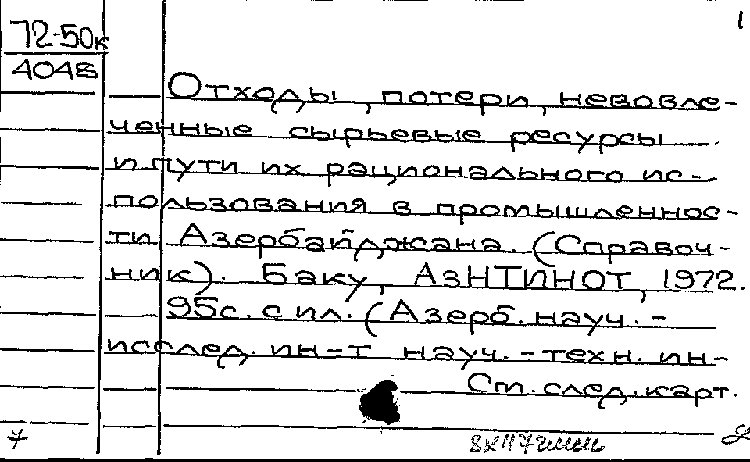 1
72-50к
4048
Отходы, потери, невовле-
ченные сырьевые ресурсы
и пути их рационального ис-
пользования в промышленнос-
ти Азербайджана. (Справоч-
ник). Баку, АзНТИНОТ, 1972.
95с. с ил. (Азерб. науч.-
исслед. ин-т науч.-техн. ин-
См. след. карт.
7